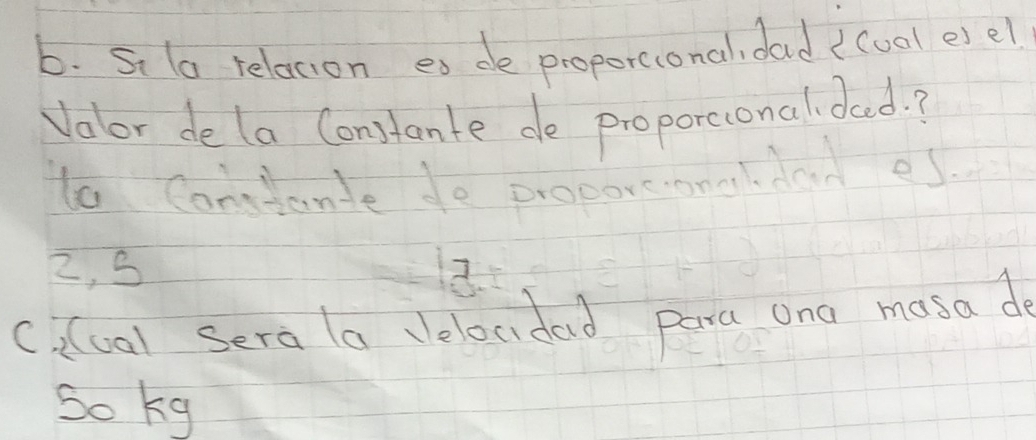 b. Si la relación es de proporcionalidad ¿Cual es el
Valor de la Constante de proporcionalidad.?
la Constante de proporcionalidad es.
2,5
C. ¿Cual Será la Velocidad para una masa de
50 kg